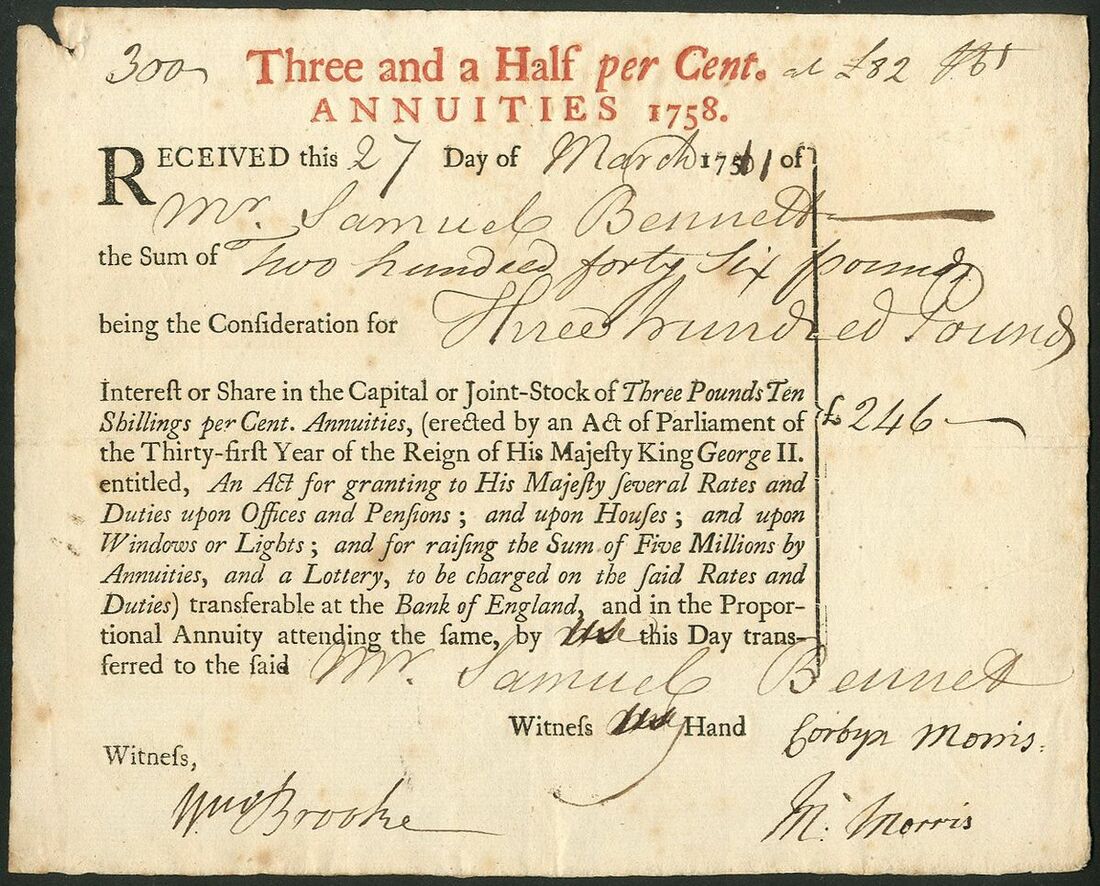 300 Three and a Half per Cent. at £82
ANNUITIES 1758.
RECEIVED this 27 Day of March of
Mr. Samuel Bennett
the Sum of Two hundred forty Six pounds
being the Consideration for Three hundred Pounds
Intereſt or Share in the Capital or Joint-Stock of Three Pounds Ten
Shillings per Cent. Annuities, (erected by an Act of Parliament of £246
the Thirty-firſt Year of the Reign of His Majeſty King George II.
entitled, An Act for granting to His Majeſty ſeveral Rates and
Duties upon Offices and Penſions; and upon Houſes; and upon
Windows or Lights; and for raiſing the Sum of Five Millions by
Annuities, and a Lottery, to be charged on the ſaid Rates and
Duties) transferable at the Bank of England, and in the Propor-
tional Annuity attending the ſame, by us this Day trans-
ferred to the ſaid Mr. Samuel Bennett
Witneſs our Hand Corbyn Morris.
Witneſs,
Wm Brooke M. Morris